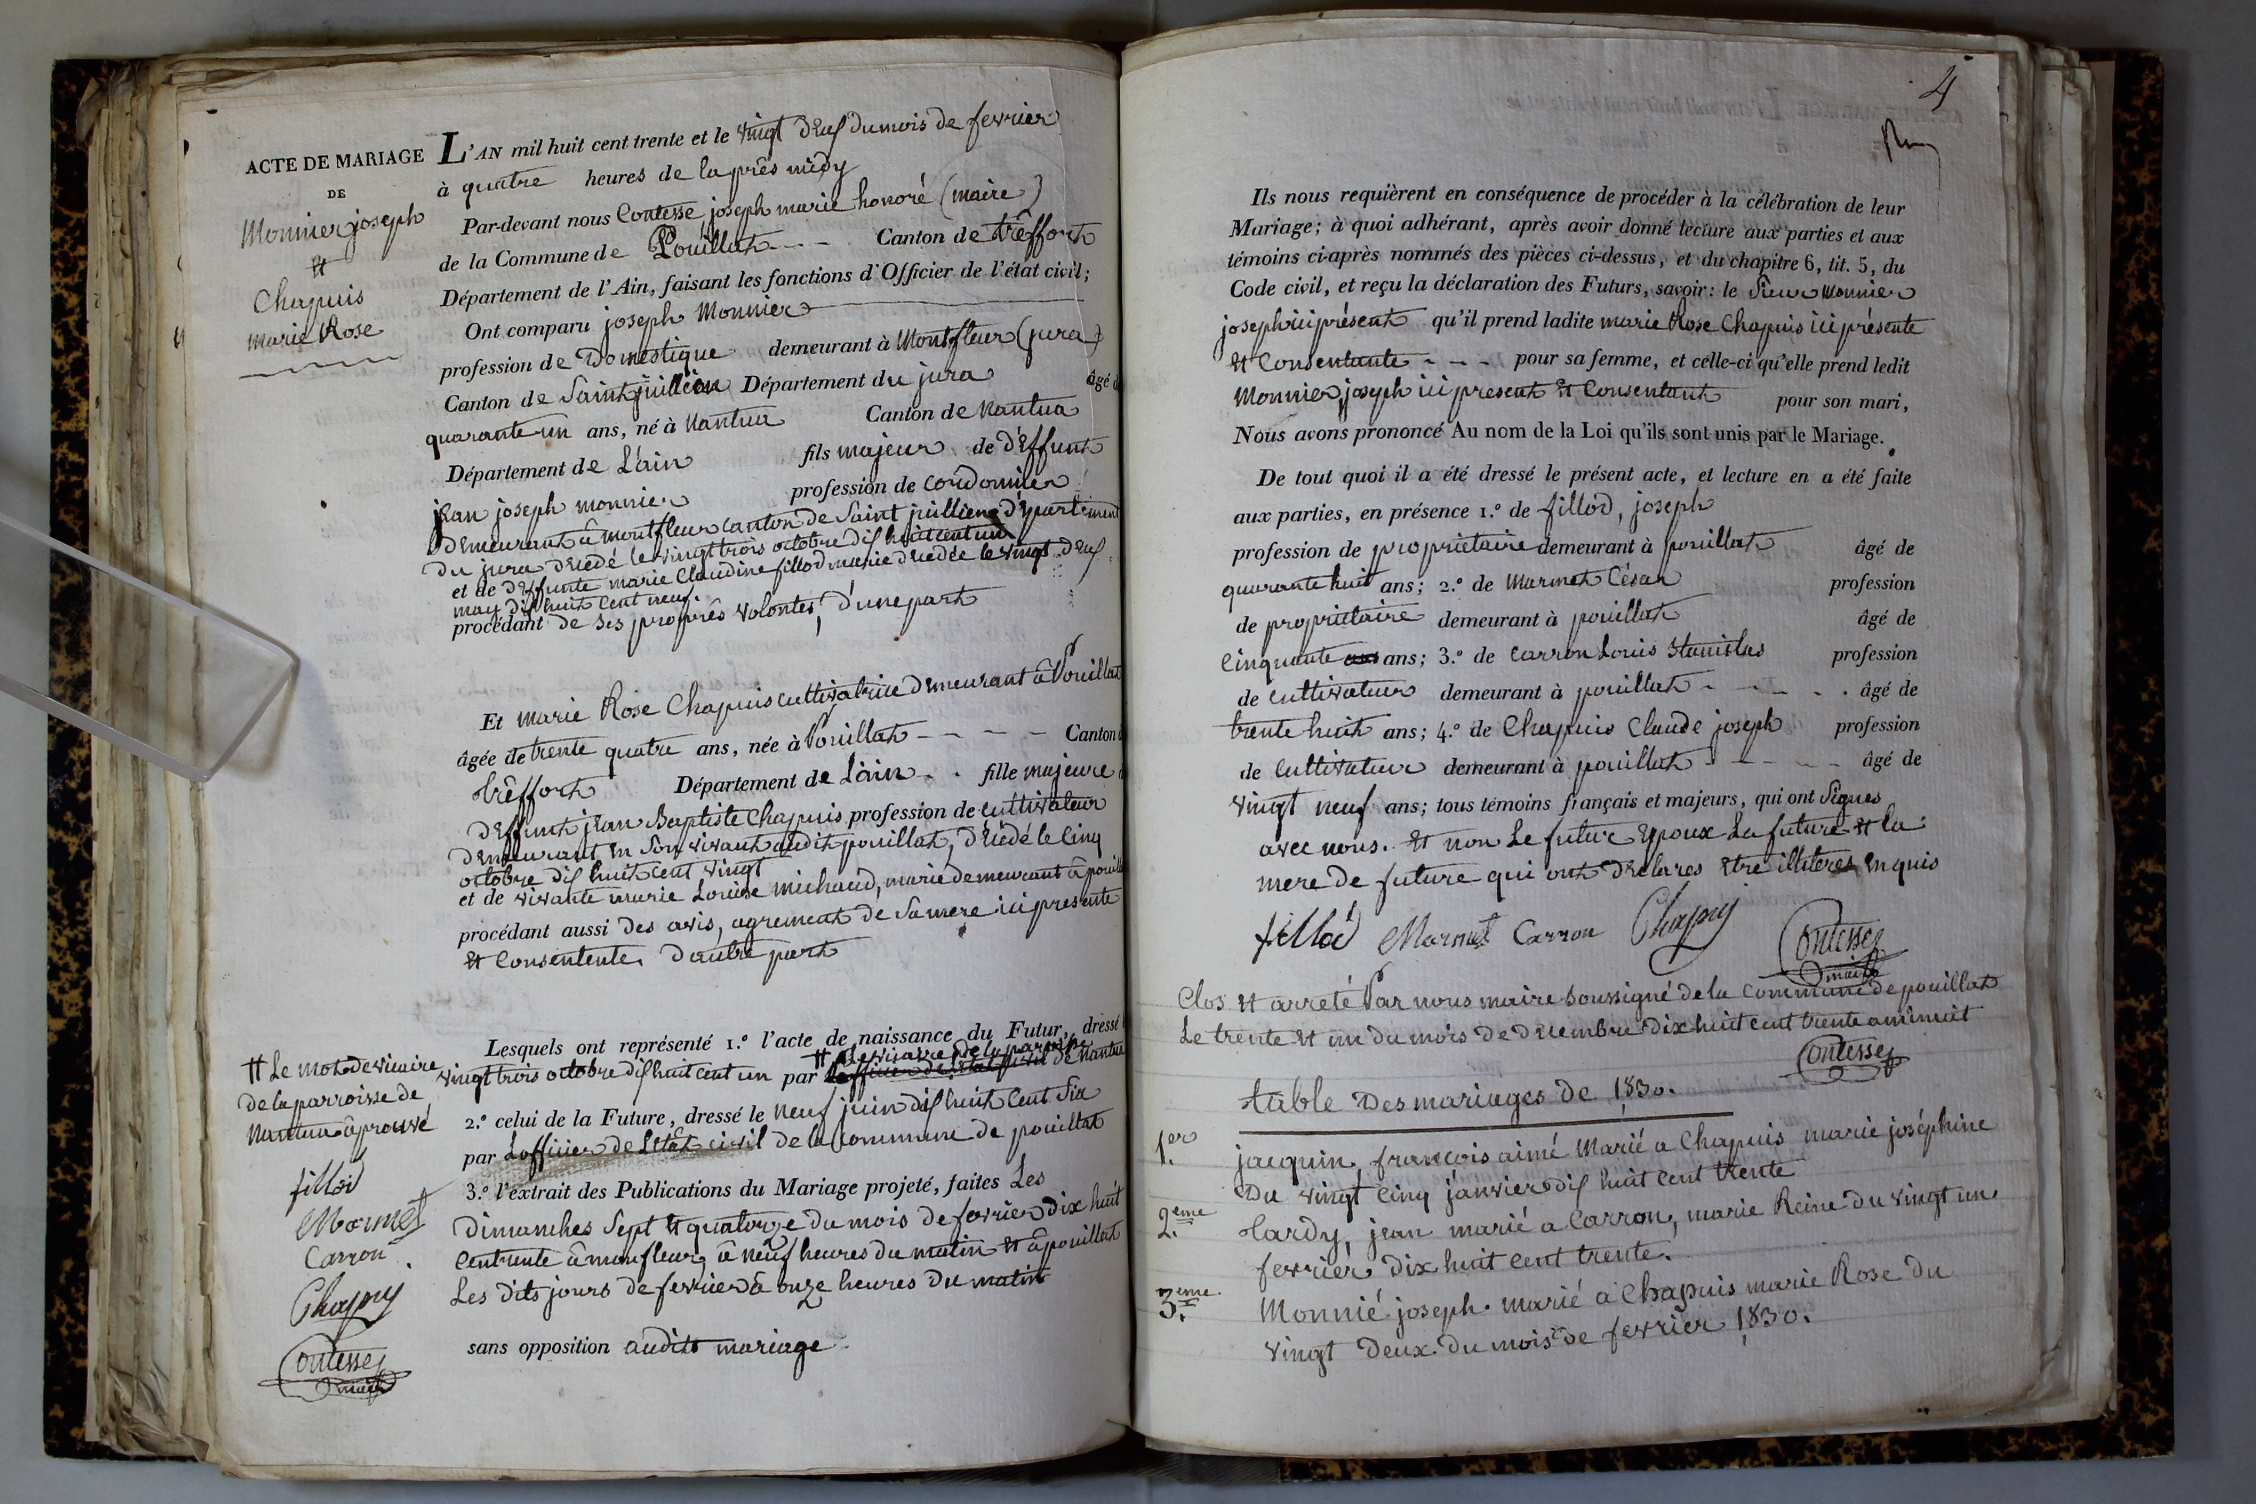 ACTE DE MARIAGE
DE
Monnier joseph
et
Chapuis
marie Rose
L'AN mil huit cent trente et le vingt deux du mois de fevrier
à quatre heures de la près midy
Par-devant nous Contesse, joseph marie honoré (maire)
de la Commune de Pouillat - - Canton de trêffort
Département de l'Ain, faisant les fonctions d'Officier de l'état civil;
Ont comparu joseph Monnier
profession de Domestique demeurant à Montfleur (jura)
Canton de Saint jullien Département du jura âgé d
quarante un ans, né à Nantua Canton de Nantua
Département de L'ain fils majeur de d'Effunt
jean joseph monnier profession de cordonnier
demeurant à montfleur canton de Saint jullien département
du jura décédé le vingt trois octobre dix huit cent un
et de deffunte marie Claudine fillod marie décédée le vingt deux
may dix huit cent neuf.
procédant de ses propres volontés, d'une part
Et marie Rose Chapuis cultivatrice demeurant à Pouillat
âgée de trente quatre ans, née à Pouillat - - - - Canton d
trêffort Département de L'ain - . fille majeure d
deffunt jean Baptiste Chapuis profession de cultivateur
demeurant en son vivant audit pouillat, décédé le cinq
octobre dix huit cent vingt
et de vivante marie Louise michaud, marie demeurant à pouilla
procédant aussi des avis, agrement de sa mere ici presente
et Consentente. d'autre part
Lesquels ont représenté 1.º l'acte de naissance du Futur, dressé l
⧺ le vicaire de la paroisse
vingt trois octobre dix huit cent un par l'officier de l'état civil de Nantua
2.º celui de la Future, dressé le neuf juin dix huit cent six
par Lofficier de L'état civil de la commune de pouillat
3.º l'extrait des Publications du Mariage projeté, faites Les
Dimanches sept et quatorze du mois de fevrier dix huit
centrente à monfleur, à neuf heures du matin et à pouillat
Les dits jours de fevrier à onze heures du matin
sans opposition audit mariage
⧺ Le mot de vicaire
de la parroisse de
Nantua âprouvé
fillod
Marmet
Carron
Chapuy
Contesse
maire
4
Ils nous requièrent en conséquence de procéder à la célébration de leur
Mariage; à quoi adhérant, après avoir donné lecture aux parties et aux
témoins ci-après nommés des pièces ci-dessus, et du chapitre 6, tit. 5, du
Code civil, et reçu la déclaration des Futurs, savoir: le sieur Monnier
joseph ici présent qu'il prend ladite marie Rose Chapuis ici présente
et Consentante - - - pour sa femme, et celle-ci qu'elle prend ledit
Monnier, joseph ici present et Consentant pour son mari,
Nous avons prononcé Au nom de la Loi qu'ils sont unis par le Mariage.
De tout quoi il a été dressé le présent acte, et lecture en a été faite
aux parties, en présence 1.º de fillod, joseph
profession de propriétaire demeurant à pouillat âgé de
quarante huit ans; 2.º de Marmet César profession
de propriétaire demeurant à pouillat âgé de
cinquante ans ans; 3.º de Carron Louis Stanislas profession
de cultivateur demeurant à pouillat - - - . . âgé de
trente huit ans; 4.º de Chapuis Claude joseph profession
de Cultivateur demeurant à pouillat - - - - âgé de
vingt neuf ans; tous témoins français et majeurs, qui ont signés
avec nous. et non le futur Epoux la future et la
mere de future qui ont declares etre illitéres enquis
fillod Marmet Carron Chapuy Contesse
maire
Clos et arreté Par nous maire soussigné de la commune de pouillat
Le trente et un du mois de decembre dix huit cent trente a minuit
Contesse
table Des mariages de 1830.
1.er jacquin, françois aimé Marié a Chapuis marie joséphine
Du vingt cinq janvier dix huit cent trente
2.eme tardy, jean marié a Carron, marie Reine du vingt un
fevrier dix huit cent trente.
3.eme Monnié joseph. marié a Chapuis marie Rose du
vingt Deux. Du mois de fevrier 1830.